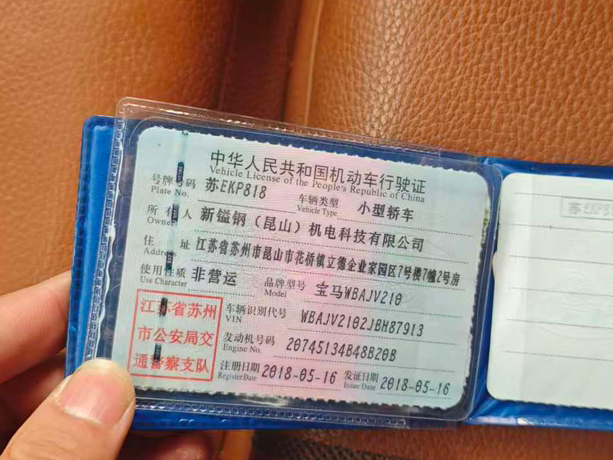 中华人民共和国机动车行驶证
Vehicle License of the People's Republic of China
号牌号码 Plate No. 苏EKP818 车辆类型 Vehicle Type 小型轿车
所有人 Owner 新镒钢（昆山）机电科技有限公司
住址 Address 江苏省苏州市昆山市花桥镇立德企业家园区7号楼7幢2号房
使用性质 Use Character 非营运 品牌型号 Model 宝马WBAJV210
车辆识别代号 VIN WBAJV2102JBH87913
发动机号码 Engine No. 20745134B48B20B
注册日期 Register Date 2018-05-16 发证日期 Issue Date 2018-05-16
江苏省苏州
市公安局交
通警察支队
苏EKP81